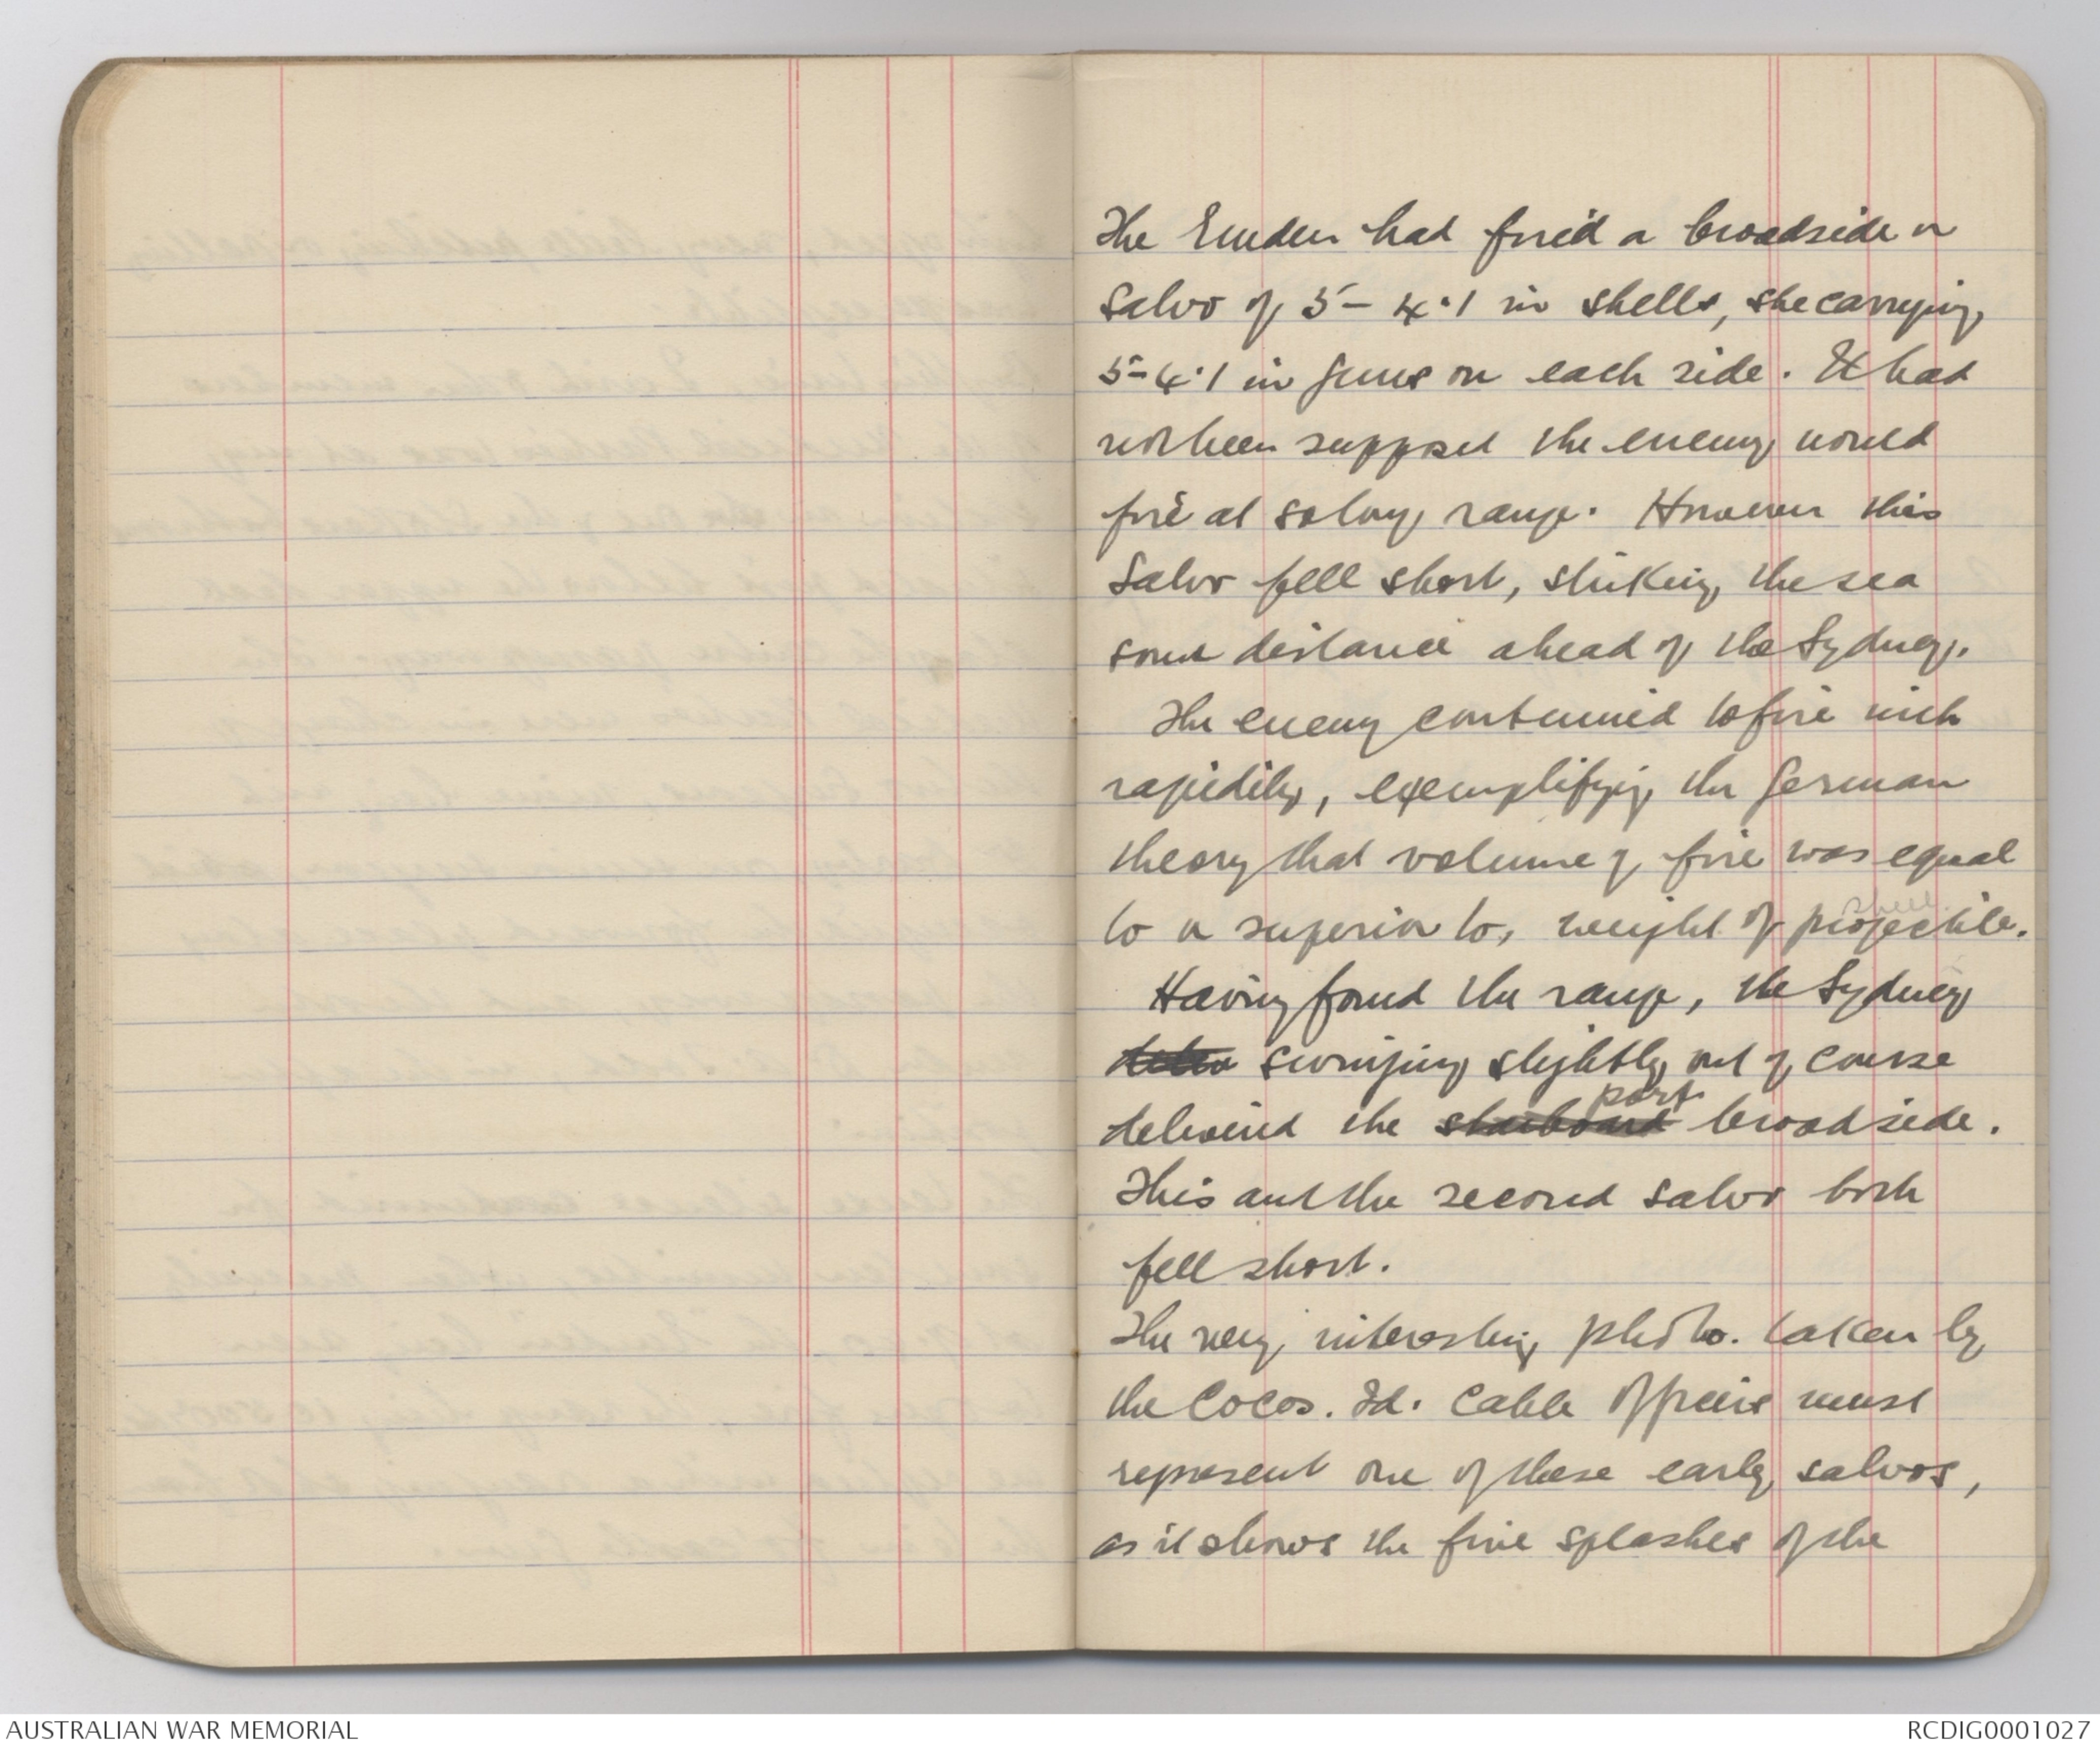 The Emden had fired a broadside or
Salvo of 5 - 4.1 in shells, she carrying
5 - 4.1 in guns on each side. It had
not been supposed the enemy would
fire at so long range. However this
Salvo fell short, striking the sea
some distance ahead of the Sydney.
The enemy continued to fire with
rapidity, exemplifying the German
theory that volume of fire was equal
shell
to or superior to, weight of projectile.
Having found the range, the Sydney
swinging slightly out of course
port
delivered the starboard broadside.
This and the second salvo both
fell short.
The very interesting photo. taken by
the Cocos. Id. Cable Officers must
represent one of these early salvos,
as it shows the five splashes of the
AUSTRALIAN WAR MEMORIAL
RCDIG0001027